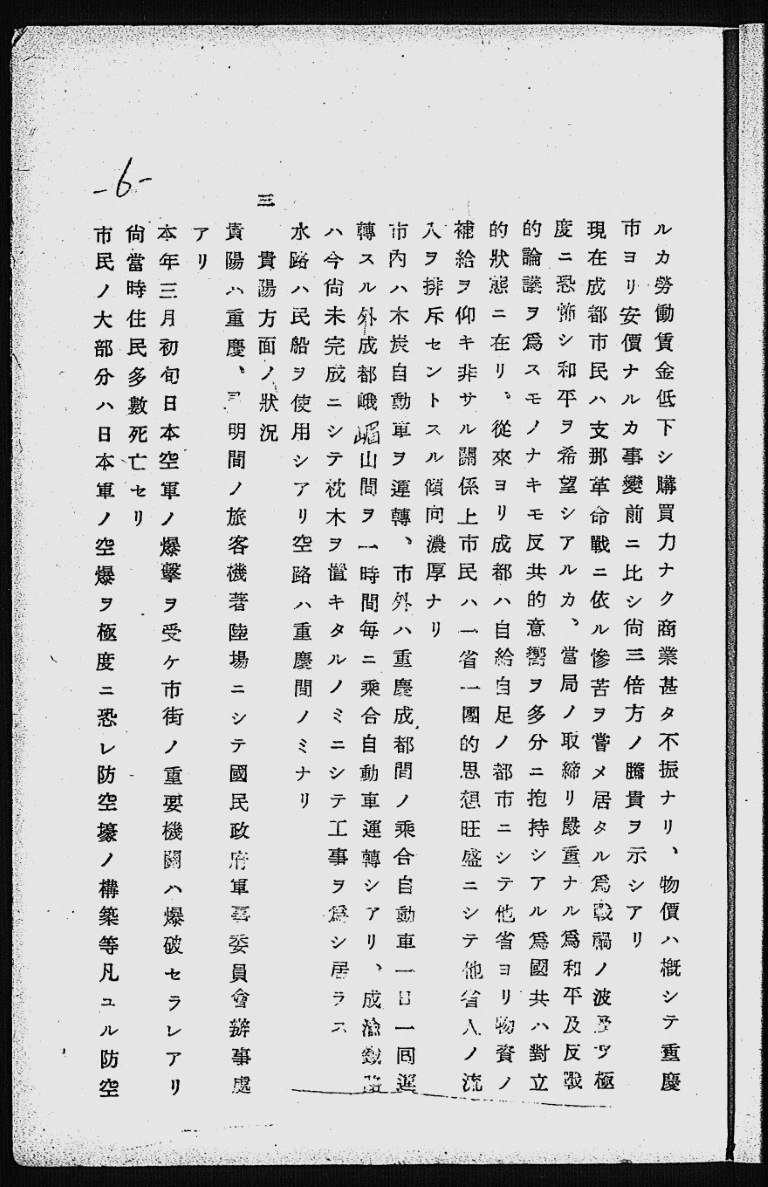 ルカ勞働賃金低下シ購買力ナク商業甚タ不振ナリ、物價ハ槪シテ重慶
市ヨリ安價ナルカ事變前ニ比シ尙三倍方ノ騰貴ヲ示シアリ
現在成都市民ハ支那革命戰ニ依ル慘苦ヲ嘗メ居タル爲戰禍ノ波及ヲ極
度ニ恐怖シ和平ヲ希望シアルカ、當局ノ取締リ嚴重ナル爲和平及反戰
的論議ヲ爲スモノナキモ反共的意嚮ヲ多分ニ抱持シアル爲國共ハ對立
的狀態ニ在リ。從來ヨリ成都ハ自給自足ノ都市ニシテ他省ヨリ物資ノ
補給ヲ仰キ非サル關係上市民ハ一省一國的思想旺盛ニシテ他省人ノ流
入ヲ排斥セントスル傾向濃厚ナリ
市內ハ木炭自動車ヲ運轉、市外ハ重慶成都間ノ乘合自動車一日一回運
轉スル外成都峨嵋山間ヲ一時間每ニ乘合自動車運轉シアリ、成渝鐵路
ハ今尙未完成ニシテ枕木ヲ置キタルノミニシテ工事ヲ爲シ居ラス
水路ハ民船ヲ使用シアリ空路ハ重慶間ノミナリ
三 貴陽方面ノ狀況
貴陽ハ重慶、昆明間ノ旅客機著陸場ニシテ國民政府軍事委員會辦事處
アリ
本年三月初旬日本空軍ノ爆擊ヲ受ケ市街ノ重要機關ハ爆破セラレアリ
尙當時住民多數死亡セリ
市民ノ大部分ハ日本軍ノ空爆ヲ極度ニ恐レ防空壕ノ構築等凡ユル防空
-6-